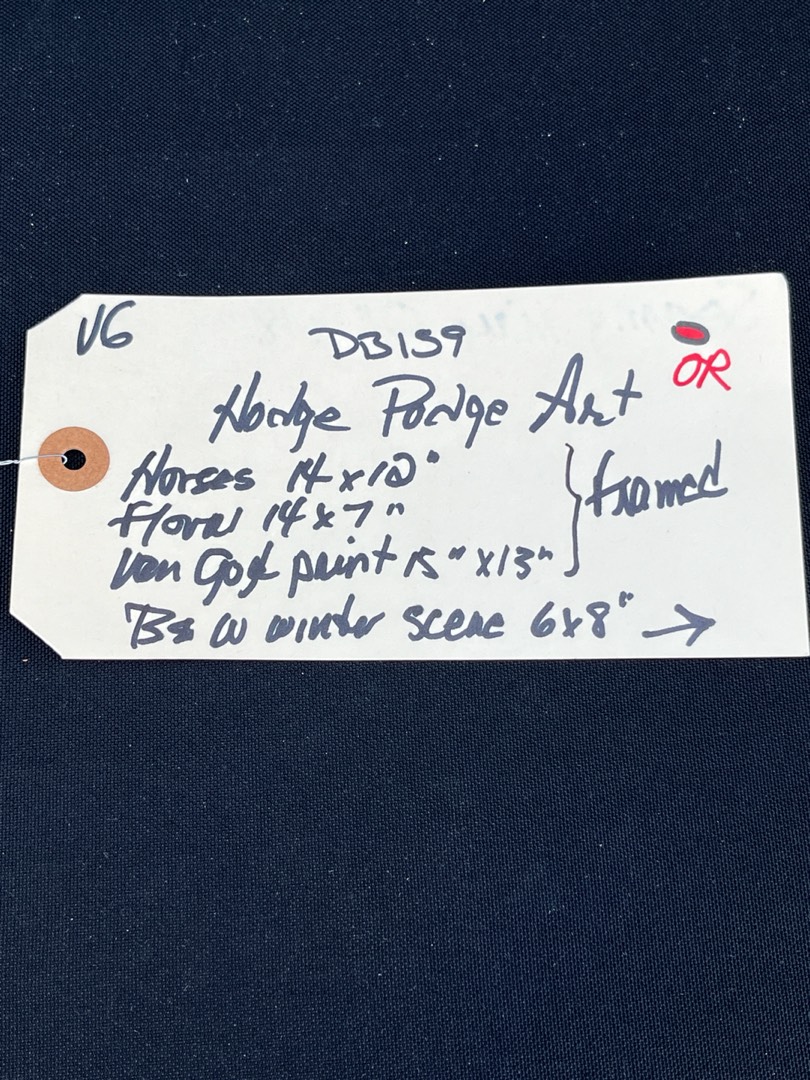 VG
DB159
OR
Hodge Podge Art
Horses 14 x 12"
Floral 14 x 7"
framed
Van Gogh print 15" x 13"
B & W winter scene 6x8" →